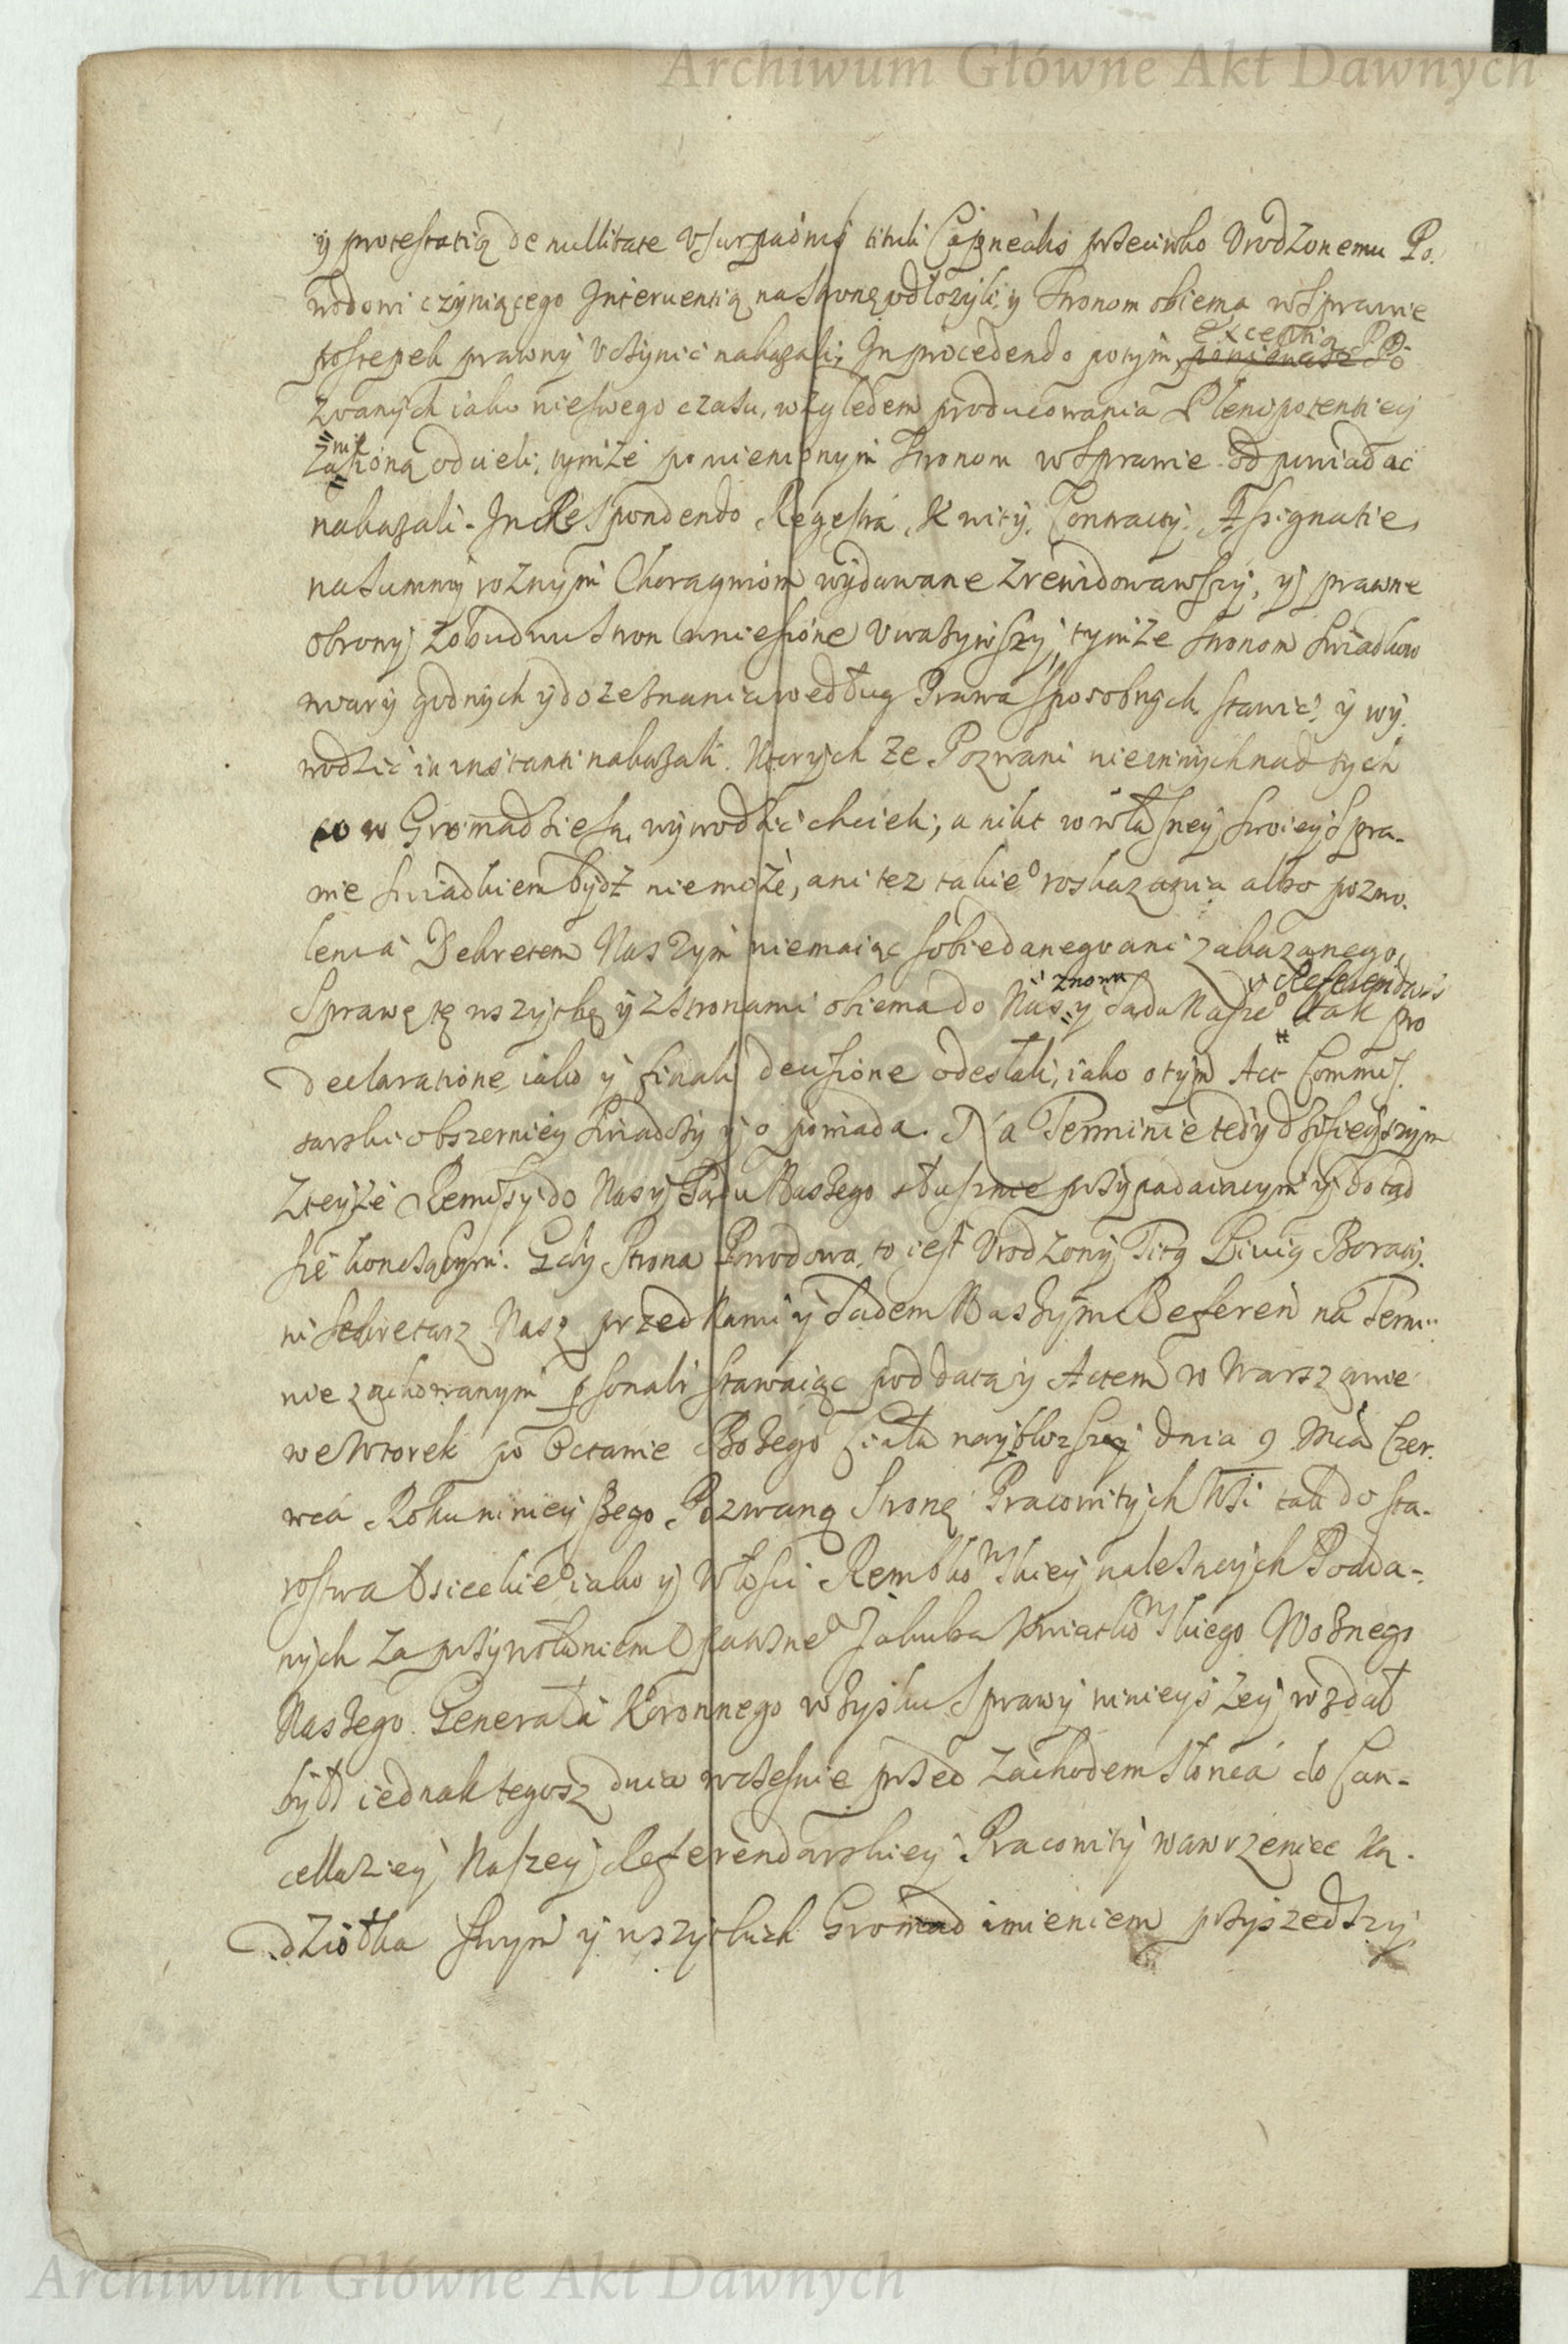 Archiwum Główne Akt Dawnych
y protestatią de nullitate Vsurpaönis tituli Capnealis przeciwko Urodzonemu Po-
wodowi czyniącego Interuentią na stronę odłozyli, y stronom obiema w sprawie
postępek prawny Vczynić nakazali; In procedendo potym exceptią Po-
zwanych iako nieswego czasu, względem producowania Plenipotentiey
odcieli, tymże pomienionym Stronom w Sprawie odpowiadać
nakazali. In Respondendo Regestra, Kwity, Contracty, Assignatie,
na summy roznym Chorągwiom wydawane zrewidowawszy, y prawne
obrony z obudwu stron wniesione Uwazywszy, tymże stronom swiadkow
wiary godnych y do zeznania według Prawa sposobnych stawić, y wy-
wodzić in instanti nakazali. Ktorych ze Pozwani nie innych nad tych
co w Gromadzie są, wywodzić chcieli, a nikt w własney swoiey Spra-
wie swiadkiem bydz niemoże, ani tez takie° roskazania albo pozwo-
lenia Dekretem Naszym niemaiąc sobie danego ani zakazanego,
Sprawę tę wszytkę y z stronami obiema do Nas znowu y Sądu Nasze° Referendars tak pro
declaratione iako y finali decisione odesłali, iako o tym Act Commis-
sarski obszerniey swiadczy y opowiada. Na Terminie tedy dzisieyszym
z teyże Remissy do Nas y Sądu Naszego słusznie przypadaiącym y dotąd
się kończącym. Gdy Strona Powodowa, to iest Vrodzony Tito Liuio Borati-
ni Sekretarz Nasz przed Nami y Sądem Naszym Referen na Termi-
nie zachowanym psonalr stawaiąc pod datą y Actem w Warszawie
we Wtorek po Octawie Bozego Ciała naybliszy dnia 9 Mca Czer-
wca Roku ninieyszego Pozwaną Stronę Pracowitych Wsi tak do sta-
rostwa Osieckie° iako y Włosci Rembkowskiey nalezących Podda-
nych za przywołaniem Opatrzne° Jakuba Kwiatkowskiego Woznego
Naszego Generała Koronnego w Zysku Sprawy ninieyszey wzdał
był, iednak tegosz dnia wczesnie przed zachodem słonca do Can-
cellariey Naszey Referendarskiey Pracowity Wawrzeniec Ką-
dziołka swym y wszytkich Gromad imieniem przyszedszy
Archiwum Główne Akt Dawnych